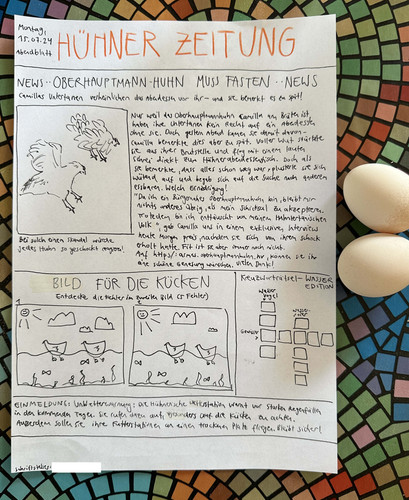 Montag,
15.07.24
Abendblatt
HÜHNER ZEITUNG
NEWS··OBERHAUPTMANN-HUHN MUSS FASTEN··NEWS
Camillas Untertanen verheimlichen das Abendessen vor ihr- und sie bemerkt es zu spät!
Nur weil das Oberhauptmannhuhn Camilla am Brüten ist
haben ihre Untertanen kein Recht auf ein Abendessen
ohne sie. Doch gestern Abend kamen sie damit davon-
Camilla bemerkte dies aber zu spät. Voller Wut stürzte
sie aus ihrer Brutstelle und flog mit einem lauten
Schrei direkt zum Hühnerabendessentisch. Doch als
sie bemerkte, dass alles schon weg war, plusterte sie sich
wütend auf und begab sich auf die Suche nach anderem
essbaren. Welch Erniedrigung!
"Da ich ein bürgernahes Oberhauptmannhuhn bin, bleibt mir
nichts anderes übrig, als mein Schicksal zu akzeptieren.
Trotzdem bin ich enttäuscht von meinem Hühnertäuschen
Volk", gab Camilla uns in einem exklusiven Interview
heute Morgen preis, nachdem sie sich von ihrem Schock
erholt hatte. Fit ist sie aber immer noch nicht.
Auf https://: können Sie ihr
eine schöne Genesung wünschen. Vielen Dank!
Bei solch einem Skandal würde
jedes Huhn so geschockt reagieren!
BILD FÜR DIE KÜCKEN
Entdecke die Fehler im zweiten Bild (5 Fehler)
Kreuzworträtsel- WASSER
EDITION
Wasser
vogel
Gewässer
EILMELDUNG: Unwetterwarnung: Die Hühnerische Wetterstation warnt vor starken Regenfällen
in den kommenden Tagen. Sie rufen dazu auf, besonders auf die Kücken zu achten.
Außerdem sollen Sie ihre Futterstationen an einen trockenen Platz pflegen. Bleibt sicher!